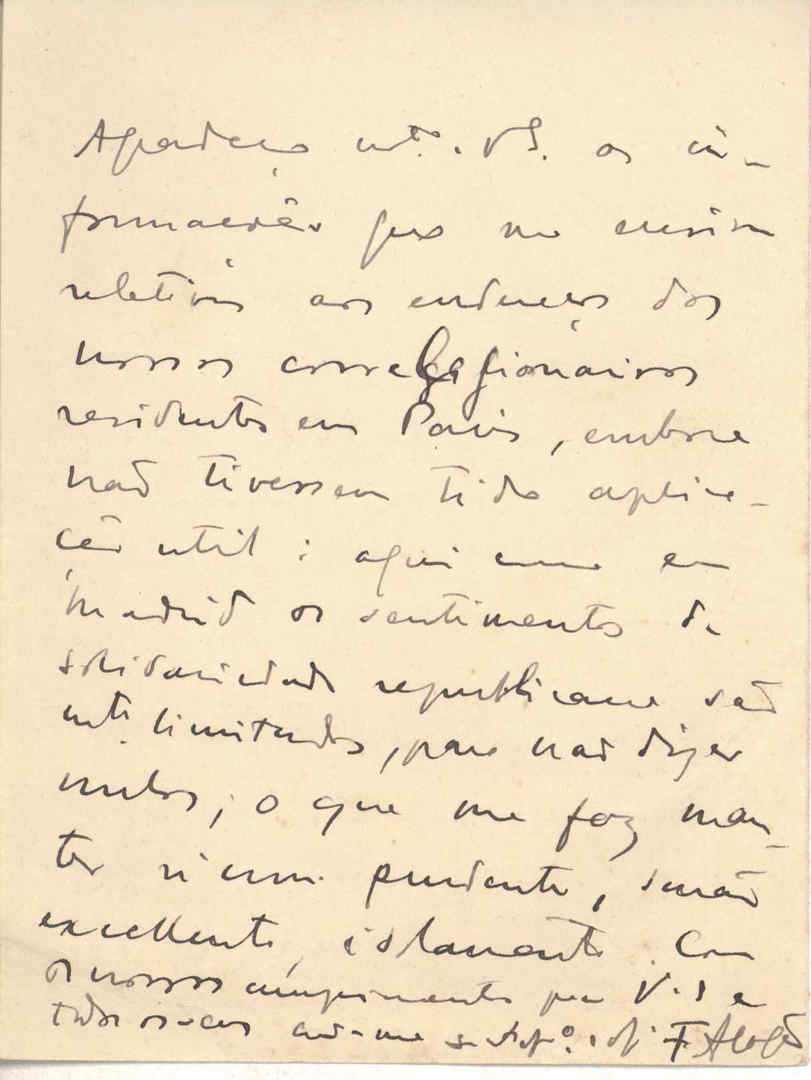 Agradeço mt.º a V.S. as in-
formações que me enviou
relativas aos endereços dos
nossos correligionários
residentes em Paris, embora
não tivessem tido aplica-
ção util: aqui como em
Madrid os sentimentos de
solidariedade republicana são
mt. limitados, para não dizer
nulos; o que me faz man-
ter n'um prudente, senão
excellente, isolamento. Com
os nossos cumprimentos para V.S. e
todos os seus